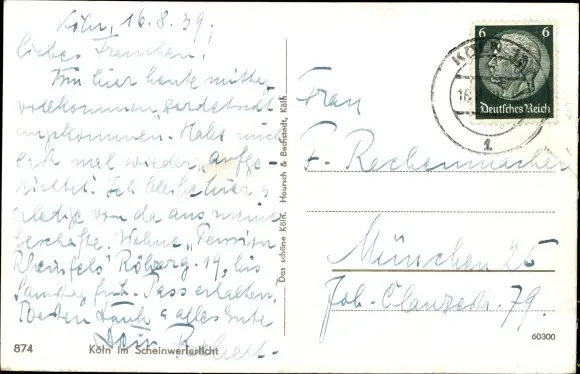 Köln, 16.8.39.
liebes Frauchen!
Bin hier heute mittag
vollkommen
angekommen. Habt mich
mal wieder „aufge-
Ich bleibe hier &
erledige von da aus meine
Geschäfte. Wohne „Pension
Rheinfels" 19, bis
Samstag früh. Pass erhalten.
Besten Dank & alles Gute
Dein Robert.
874 Köln im Scheinwerferlicht
Das schöne Köln. Hoursch & Bechstedt, Köln
6 6
Deutsches Reich
KÖLN
16
1
Frau
F. Rechenmacher
München 25
Joh. Clanzestr. 79.
60300